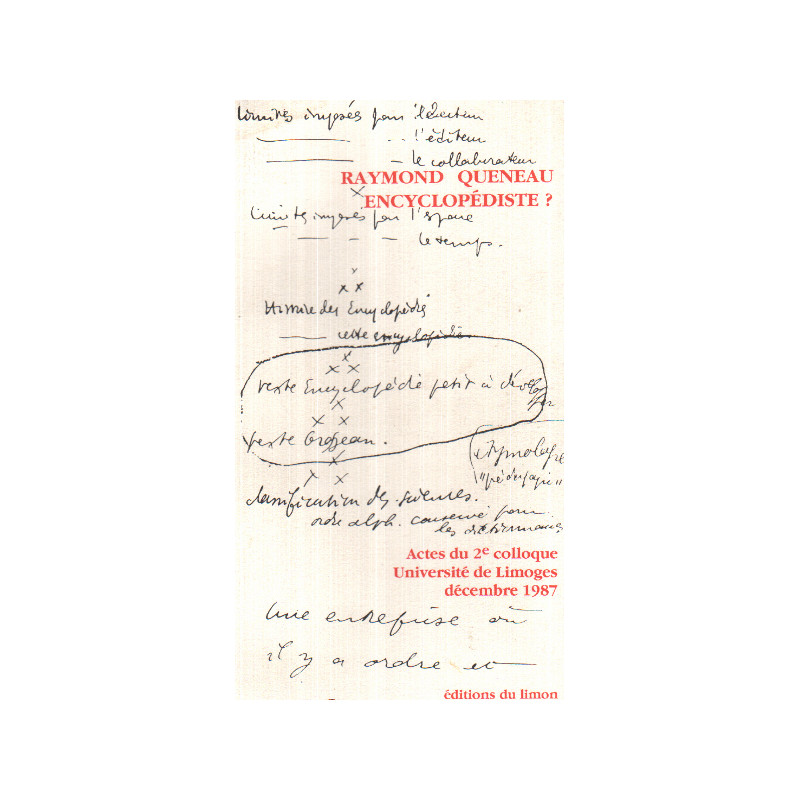 Limites imposées par l'lecteur
l'éditeur
le collaborateur
RAYMOND QUENEAU
ENCYCLOPÉDISTE ?
Limites imposées par l'espace
le temps.
Histoire des Encyclopédies
cette encyclopédie
texte Encyclopédie petit à développer
texte Grosjean.
étymologie
"pédagogie"
classification des sciences.
ordre alph. conservé pour
les dictionnaires
Actes du 2e colloque
Université de Limoges
décembre 1987
Une entreprise où
il y a ordre et
éditions du limon